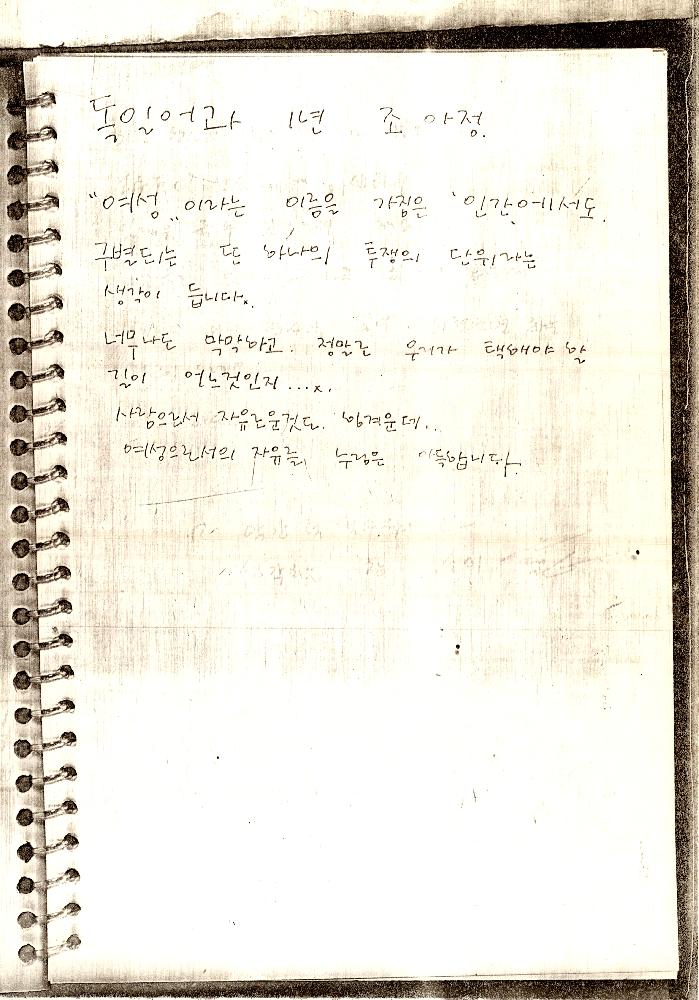 독일어과 1년 조 아정.
"여성"이라는 이름을 가짐은 '인간'에서도.
구별되는 또 하나의 투쟁의 단위라는
생각이 듭니다.
너무나도 막막하고. 정말로 우리가 택해야 할
길이 어느것인지....
사람으로서 자유로운것도. 힘겨운데..
여성으로서의 자유를 누림은 아득합니다.